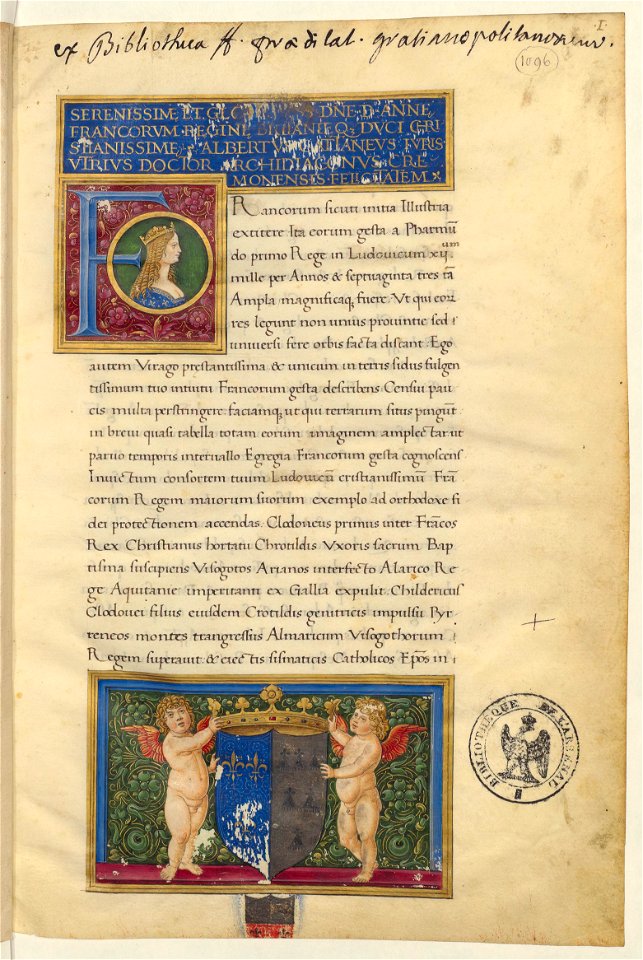 .1.
ex Bibliotheca ff. prædicat. gratianopolitanorum.
1096
SERENISSIME ET GLO DNE D ANNE
FRANCORVM REGINE BRITANIEQ DVCI CRI
STIANISSIME ALBERT CATTANEVS IVRIS
VTRIVS DOCTOR ARCHIDIACONVS CRE
MONENSIS FELICITATEM
F
Rancorum sicuti initia Illustria
extitere Ita eorum gesta a Pharmū
do primo Rege in Ludovicum xij.um
mille per Annos & septuaginta tres tā
Ampla magnificaq; fuere. Vt qui eoꝝ
res legunt non unius provintie sed
universi fere orbis facta discant. Ego
autem Virago prestantissima & unicum in terris sidus fulgen
tissimum tuo intuitu Francorum gesta describens Censui pau
cis multa perstringere. faciamq; ut qui terrarum situs pingūt
in brevi quasi tabella totam eorum imaginem amplectar. ut
parvo temporis intervallo Egregia Francorum gesta cognoscens
Invictum consortem tuum Ludovicū cristianissimum Frā
corum Regem maiorum suorum exemplo ad orthodoxe fi
dei protectionem accendas. Clodoveus primus inter Frācos
Rex Christianus hortatu Chrotildis Vxoris sacrum Bap
tisma suscipiens Visogotos Arianos interfecto Alarico Re
ge Aquitanie imperitanti ex Gallia expulit. Childericus
Clodovei filius eiusdem Crotildis genitricis impulsu Pyr
reneos montes trangressus Almaricum Visogothorum
Regem superavit. & eiectis sismaticis Catholicos Epōs in
BIBLIOTHEQUE DE L'ARSENAL